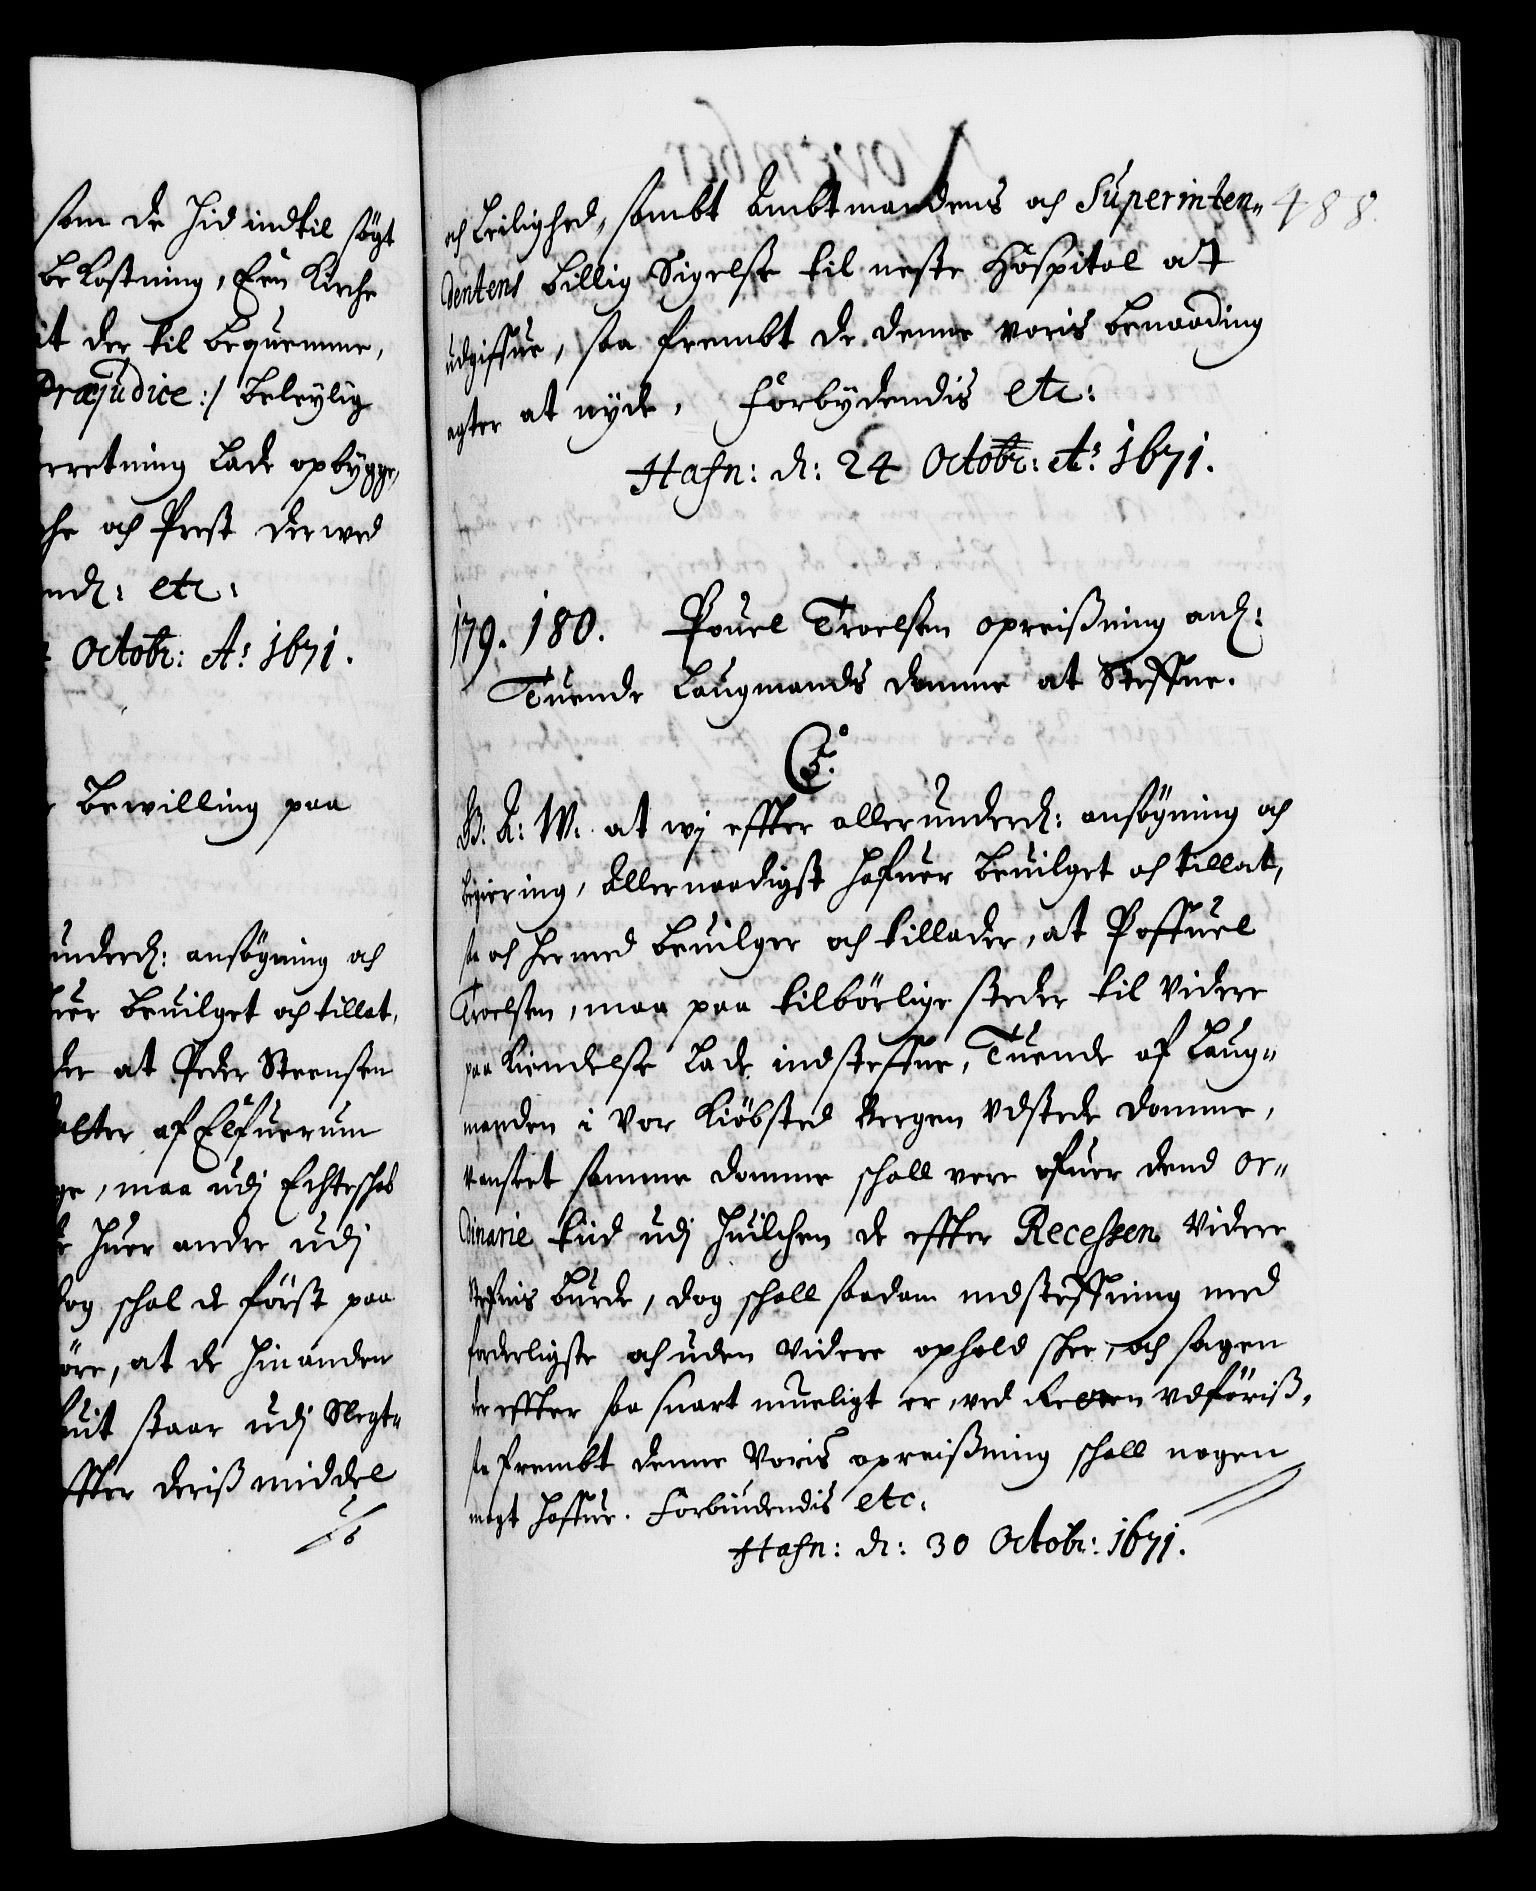 som de hid indtil søgt
bekostning, Een Kirche
it der til beqvemme,
Præjudice :/ beleylig
rretning lade opbygge,
he och Prest der ved
nd: etc:
Octobr: A: 1671.
Bewilling paa
underd: ansøgning och
uer beuilget och tillat,
der at Peder Steensen
alter af Elfuerum
ge, maa udj Echteschab
huer andre udj
dog schal de först paa
øre, at de hinanden
uit staar udj Slegt-
ffter deris middel
488.
och Leilighed, sambt Ambtmandens och Superinten-
dentens billig Sigelse til neste Hospital at
udgiffue, saa frembt de denne voris benaading
agter at nyde, Forbydendis etc:
Hafn: d: 24 Octobr: A: 1671.
179. 180. Pouel Troelsen opreisning anl:
Tuende Laugmands domme at Steffne.
C5.
G: A: W. at wj effter allerunderd: ansøgning och
begiering, Allernaadigst hafuer beuilget och tillat,
sa och hermed beuilger och tillader, at Poffuel
Troelsen, maa paa tilbörlige steder til Videre
paa Kiendelse lade indsteffne, Tuende af Laug-
manden i Vor Kiöbsted Bergen Vdstede domme,
Uanseet samme domme schall vere ofuer dend or-
dinarie tiid udj huilchen de effter Recessen Videre
stefnis burde, dog schall saadan indsteffning med
forderligste och uden Videre ophold skee, och sagen
der effter saa snart mueligt er, ved Retten vdføris,
sa frembt denne Voris opreisning schall nogen
magt haffue. Forbiudendis etc.
Hafn: d: 30 Octobr: 1671.